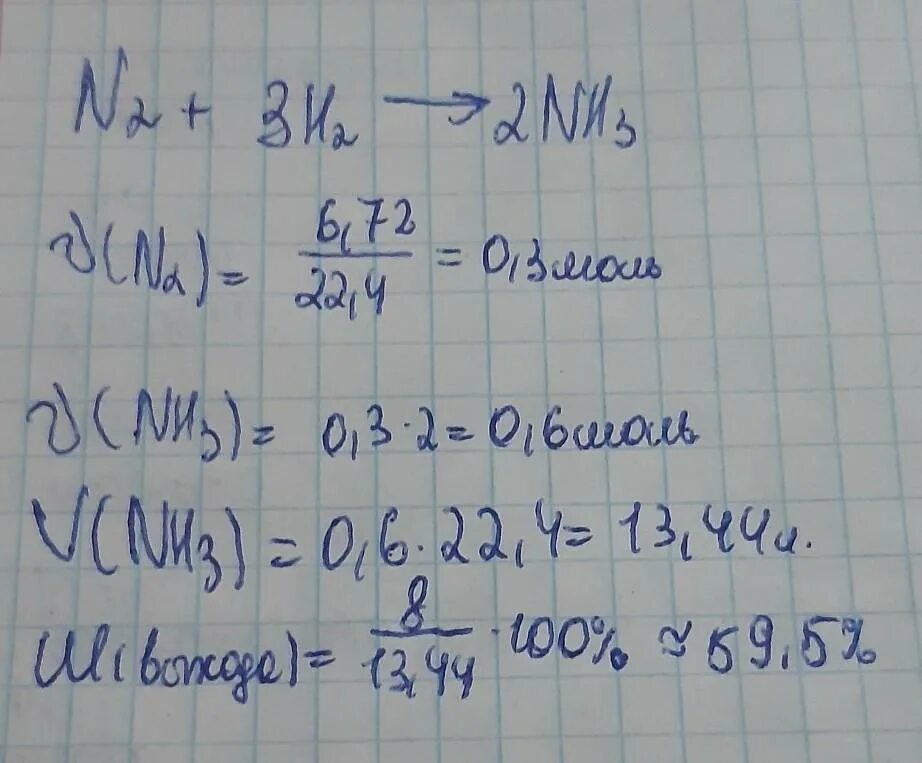 N₂ + 3H₂ → 2NH₃
ν(N₂) = 6,72/22,4 = 0,3 моль
ν(NH₃) = 0,3·2 = 0,6 моль
V(NH₃) = 0,6·22,4 = 13,44 л.
W(выхода) = 8/13,44 ·100% ≈ 59,5%